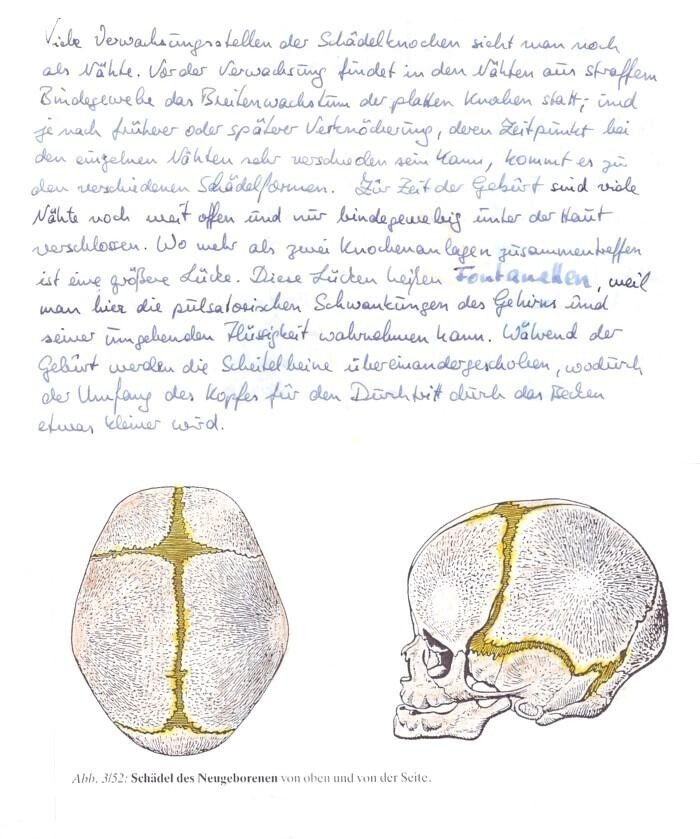 Viele Verwachsungsstellen der Schädelknochen sieht man noch
als Nähte. Vor der Verwachsung findet in den Nähten aus straffem
Bindegewebe das Breitenwachstum der platten Knochen statt; und
je nach früherer oder späterer Verknöcherung, deren Zeitpunkt bei
den einzelnen Nähten sehr verschieden sein kann, kommt es zu
den verschiedenen Schädelformen. Zur Zeit der Geburt sind viele
Nähte noch weit offen und nur bindegewebig unter der Haut
verschlossen. Wo mehr als zwei Knochenanlagen zusammentreffen
ist eine größere Lücke. Diese Lücken heißen Fontanellen, weil
man hier die pulsatorischen Schwankungen des Gehirns und
seiner umgebenden Flüssigkeit wahrnehmen kann. Während der
Geburt werden die Scheitelbeine übereinandergeschoben, wodurch
der Umfang des Kopfes für den Durchtritt durch das Becken
etwas kleiner wird.
Abb. 3/52: Schädel des Neugeborenen von oben und von der Seite.